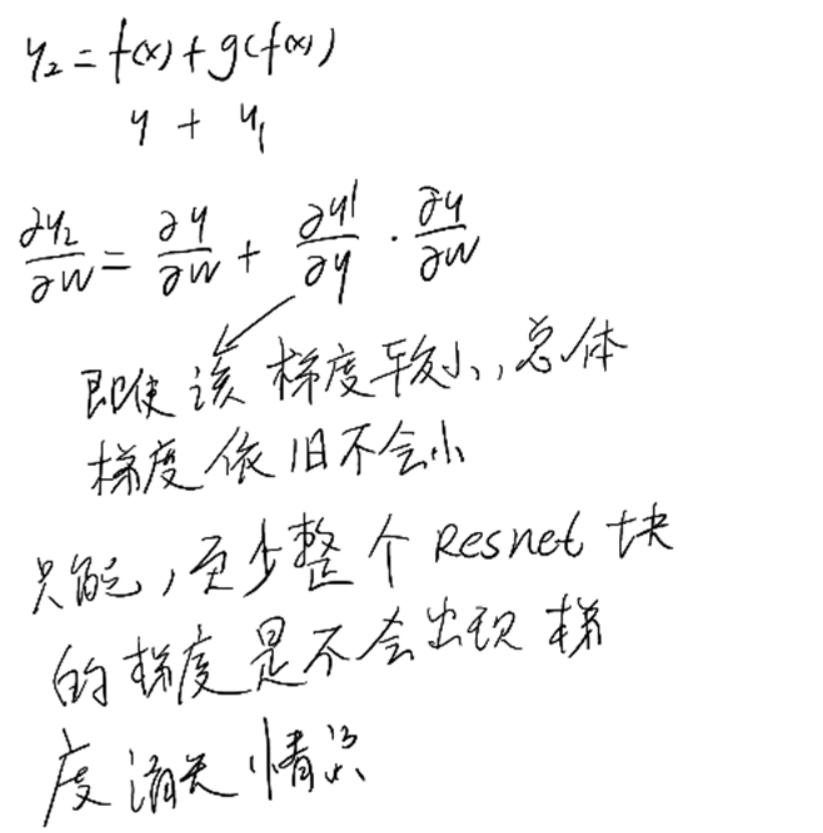 y₂ = f(x) + g(f(x))
y + y₁
∂y₂/∂w = ∂y/∂w + ∂y1/∂y · ∂y/∂w
即使该梯度较小,总体
梯度依旧不会小
只能,至少整个Resnet块
的梯度是不会出现梯
度消失情况